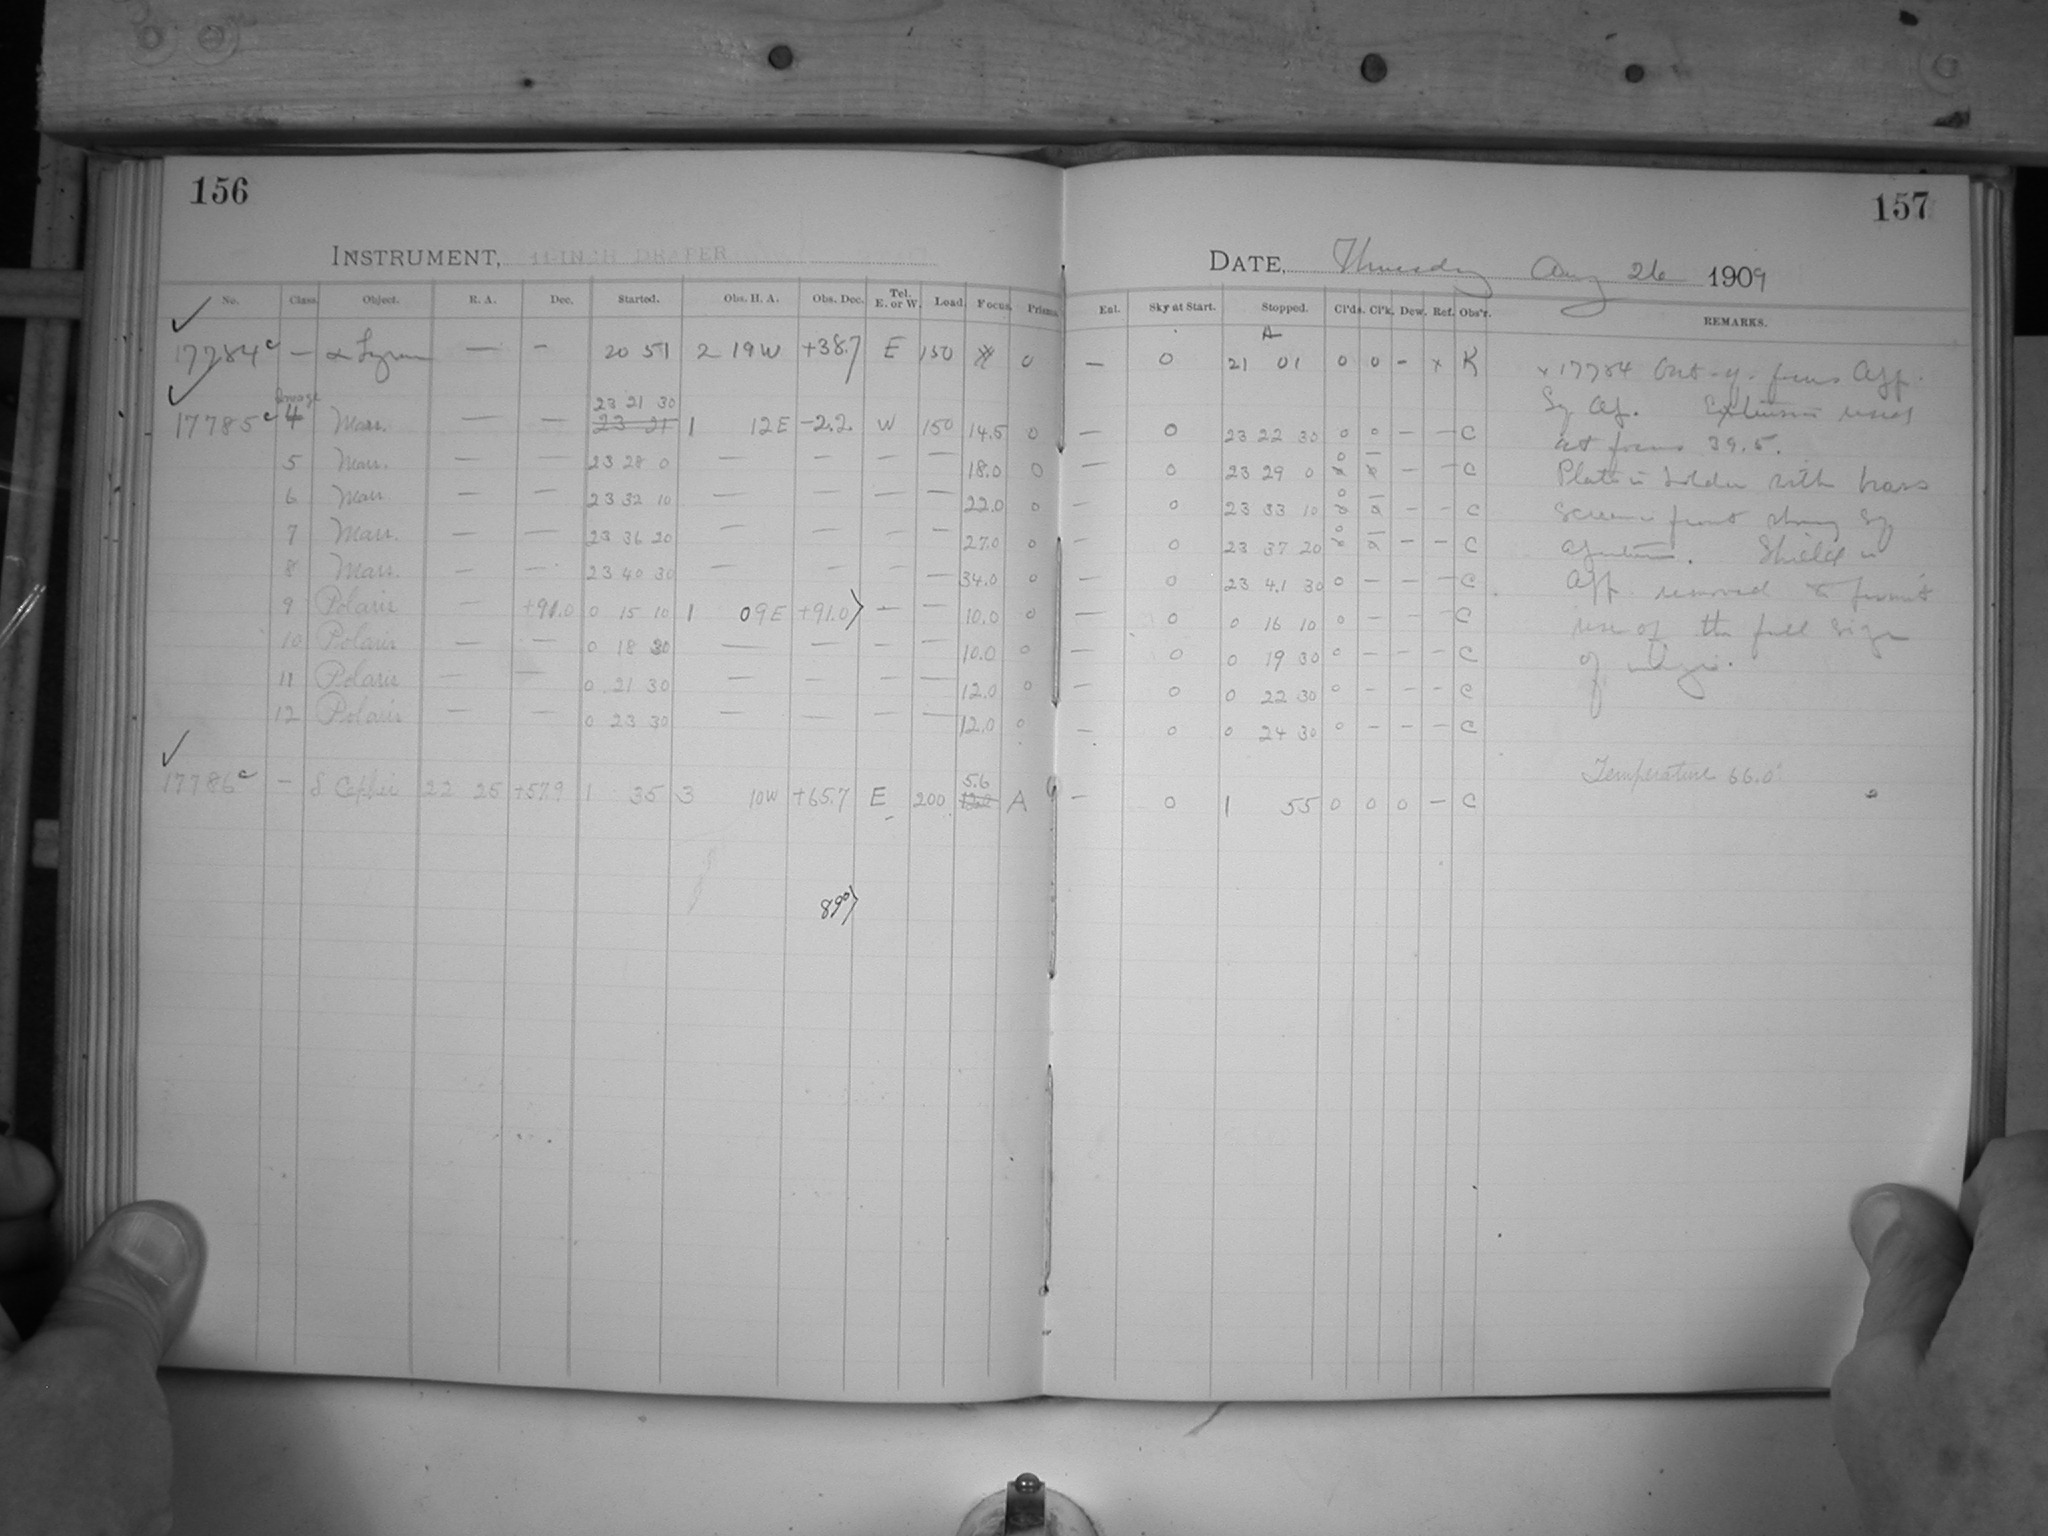 156
157
INSTRUMENT, 11-INCH DRAPER
DATE, Thursday Aug 26 1909
No. Class. Object. R. A. Dec. Started. Obs. H. A. Obs. Dec. Tel. E. or W. Load Focus Prisms. Enl. Sky at Start. Stopped. Cl'ds. Cl'k. Dew. Ref. Obs'r. REMARKS.
A
17784c — α Lyrae — - 20 51 2 19W +38.7 E 150 0 — 0 21 01 0 0 - x K
Image 23 21 30
17785c 4 Mars. — — 23 21 1 12E -2.2 W 150 14.5 0 — 0 23 22 30 0 0 — — C
5 Mars. — — 23 28 0 — — — — 18.0 0 — 0 23 29 0 0 — — — C
6 Mars — — 23 32 10 — — — — 22.0 0 — 0 23 33 10 0 — — — C
7 Mars. — — 23 36 20 — — — — 27.0 0 — 0 23 37 20 0 — — — C
8 Mars. — — 23 40 30 — — — 34.0 0 — 0 23 41 30 0 — — — C
9 Polaris — +91.0 0 15 10 1 09E +91.0 — — 10.0 0 — 0 0 16 10 0 — — — C
10 Polaris — — 0 18 30 — — — — 10.0 0 — 0 0 19 30 0 - - — C
11 Polaris — — 0 21 30 — — — — 12.0 0 — 0 0 22 30 0 - — — C
12 Polaris — — 0 23 30 — — — — 12.0 0 — 0 0 24 30 0 — — — C
5.6
17786c — δ Cephei 22 25 +57.9 1 35 3 10W +65.7 E 200 A — 0 1 55 0 0 0 — C
890
x 17784 Out-of-focus App.
Sq Ap. Extension used
at focus 39.5.
Plate in holder with brass
screen in front strong Sq
aperture. Shield in
App. removed to permit
use of the full size
of
Temperature 66.0°